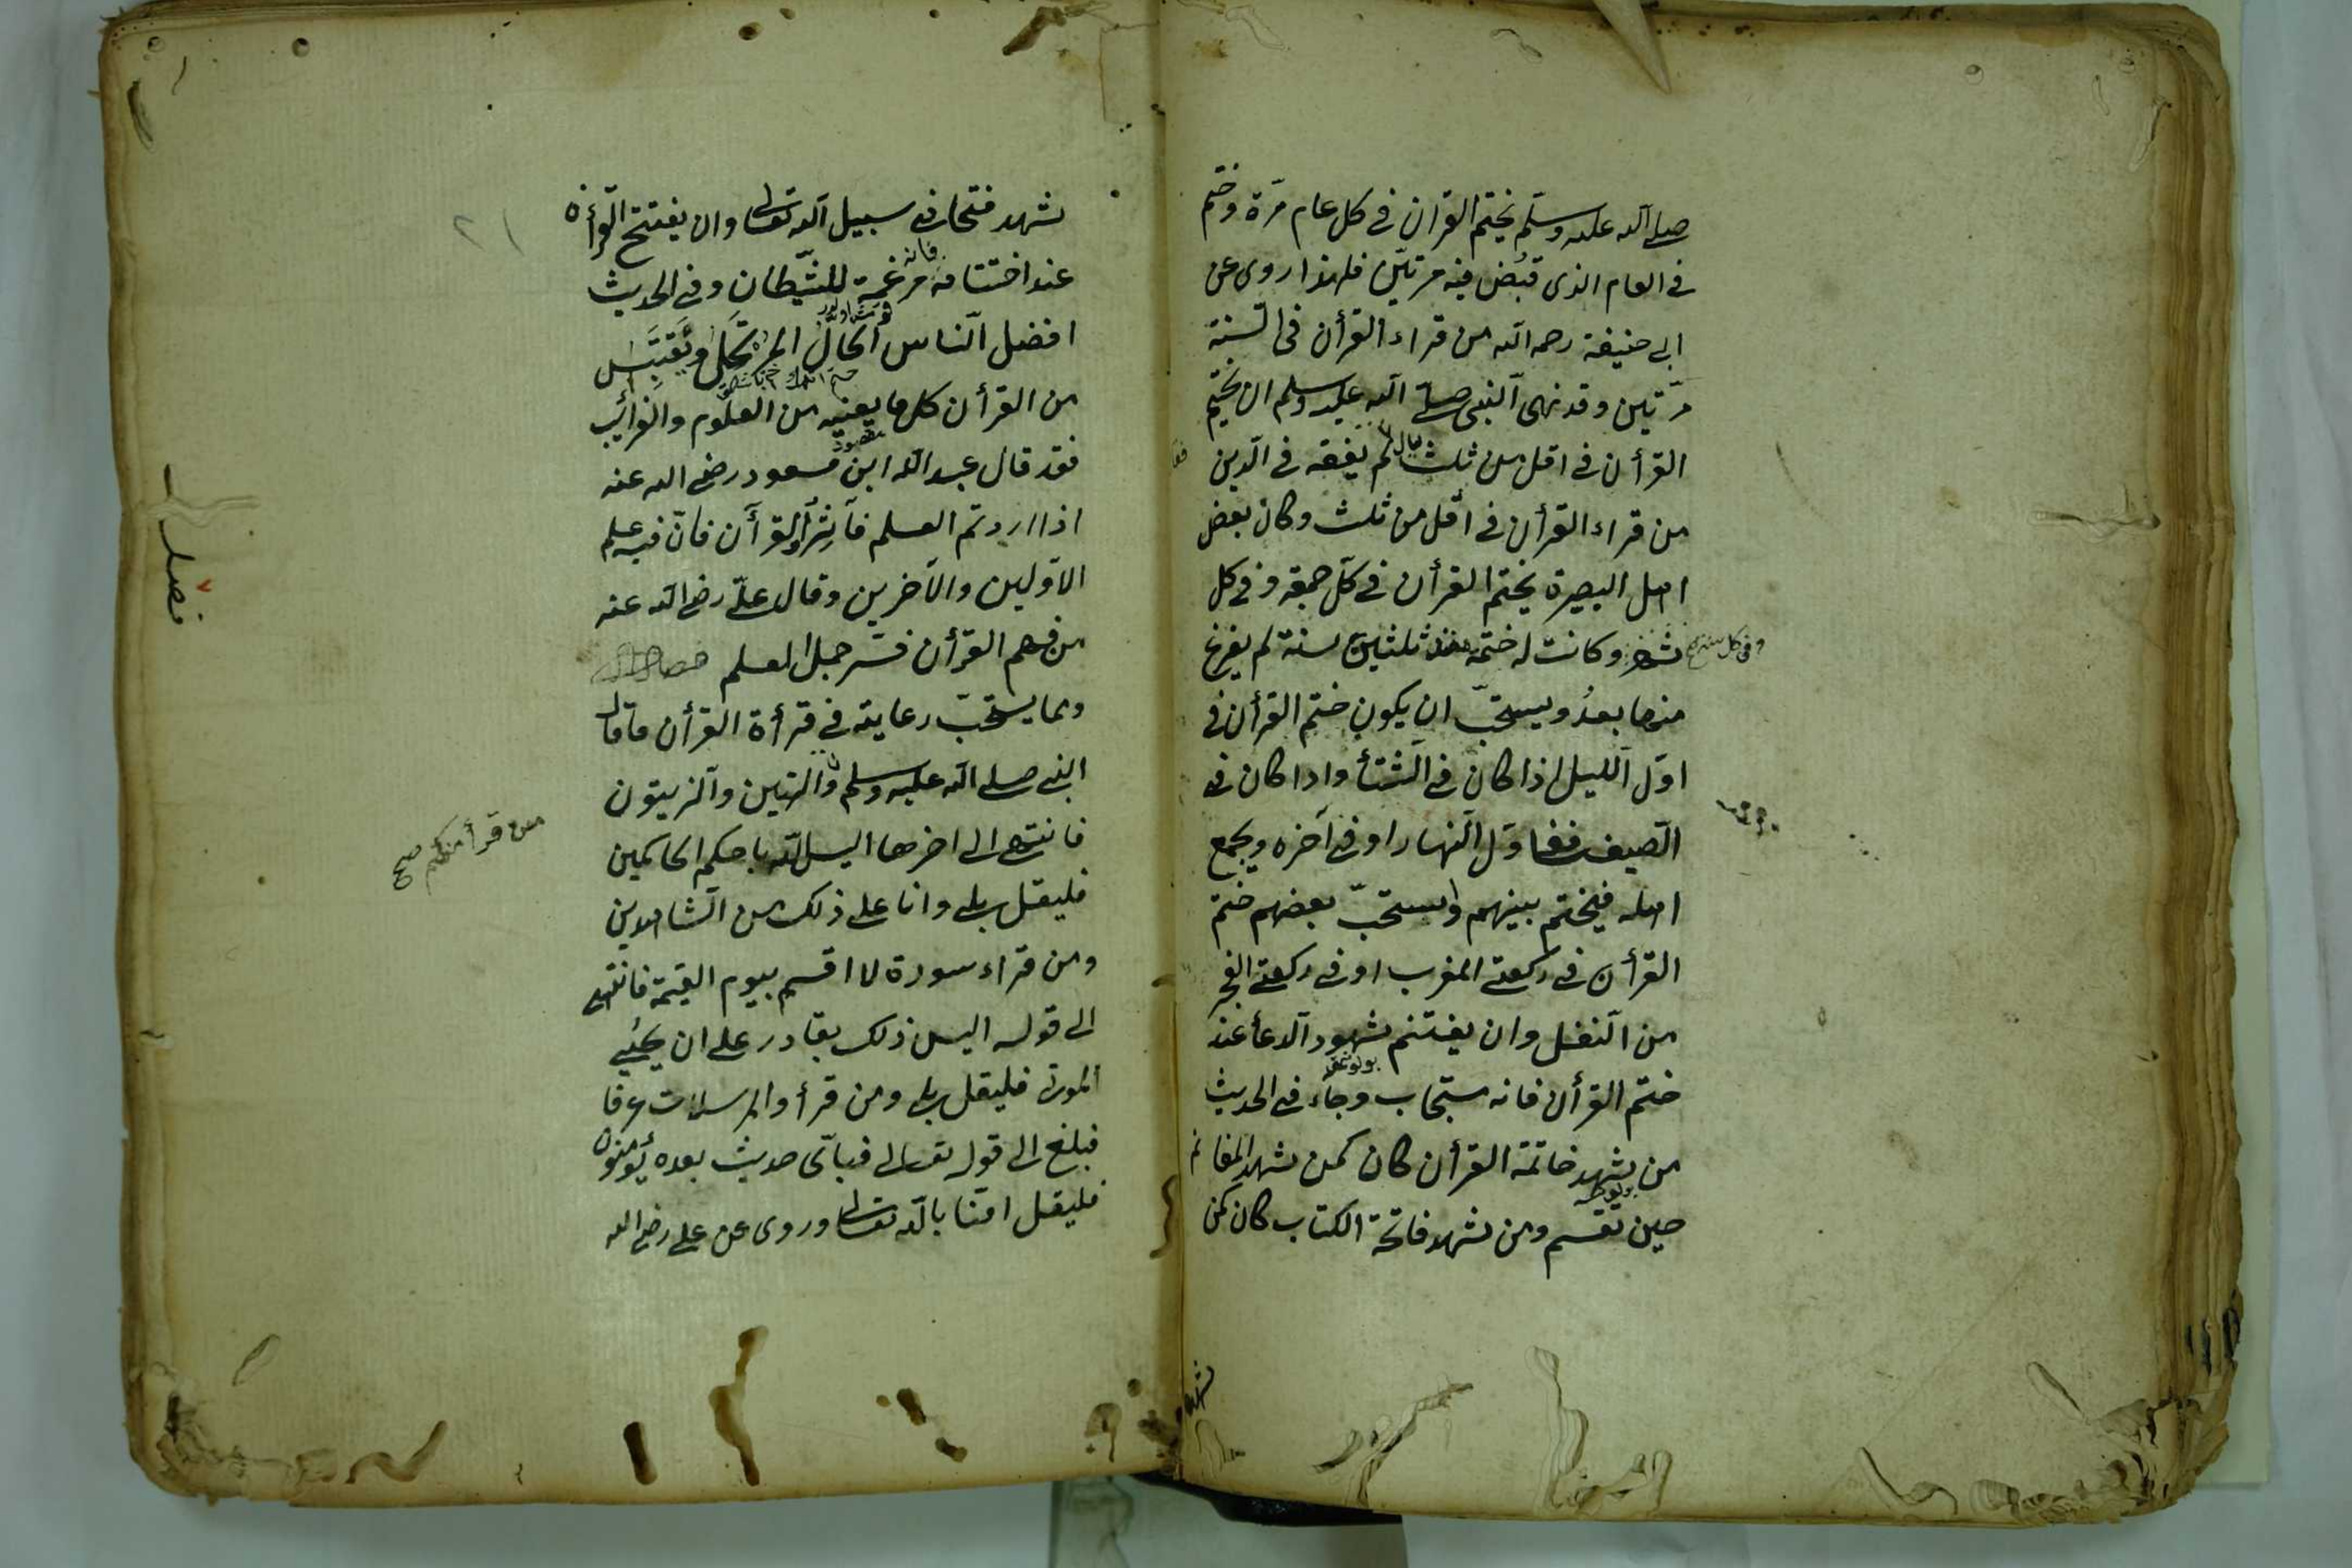 صلى الله عليه وسلم يختم القران فى كل عام مرة وختم
فى العام الذى قبض فيه مرتين فلهذا روى عن
ابى حنيفة رحمه الله من قراء القرأن فى السنة
مرتين وقد نهى النبى صلى الله عليه وسلم ان يختم
القرأن فى اقل من ثلث قال لم يفقه فى الدين
من قراء القرأن فى اقل من ثلث وكان بعض
اهل البصيرة يختم القرأن فى كل جمعة وفى كل
شهر وكانت له ختمة منذ ثلثين سنة لم يفرغ
وفى كل سنة
منها بعد ويستحب ان يكون ختم القرأن فى
اول الليل اذا كان فى الشتأ واذا كان فى
الصيف ففى اول النهار او فى آخره ويجمع
اهله فيختم بينهم واستحب بعضهم ختم
القرأن فى ركعتى المغرب او فى ركعتى الفجر
من النفل وان يغتنم شهود الدعأ عند
ختم القرأن فانه مستجاب وجاء فى الحديث
من شهد خاتمة القرأن كان كمن شهد المغانم
حين تقسم ومن شهد فاتحة الكتاب كان كمن
شهد
شهد فتحا فى سبيل الله تعالى وان يفتتح القرأن
٢١
عند اختتامه فانه مرغمة للشيطان وفى الحديث
افضل الناس الحال المرتحل ويقتبس
من القرأن كل ما يعنيه من العلوم والغرائب
مقصود
فقد قال عبد الله ابن مسعود رضى الله عنه
اذا اردتم العلم فأثروا القرآن فان فيه علم
الاولين والآخرين وقال على رضى الله عنه
من فهم القرأن فسر جمل العلم
فصل
ومما يستحب رعايته فى قرأة القرأن ما قال
النبى صلى الله عليه وسلم والتين والزيتون
من قرأ منكم صح
فانتهى الى اخرها اليس الله باحكم الحاكمين
فليقل بلى وانا على ذلك من الشاهدين
ومن قراء سورة لا اقسم بيوم القيمة فانتهى
الى قوله اليس ذلك بقادر على ان يحيى
الموتى فليقل بلى ومن قرأ والمرسلات عرفا
فبلغ الى قوله تعالى فباى حديث بعده يؤمنون
فليقل امنا بالله تعالى وروى عن على رضى الله